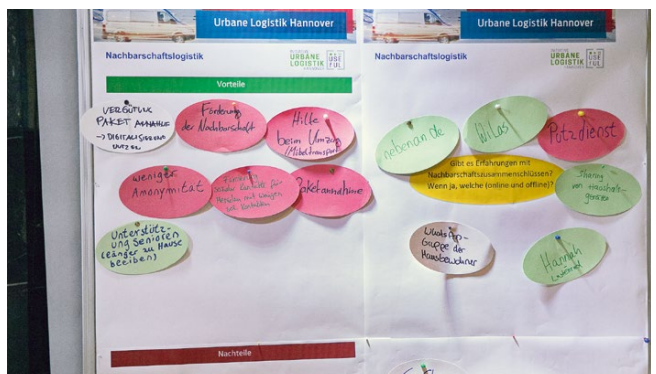 Urbane Logistik Hannover
Nachbarschaftslogistik
URBANE
LOGISTIK
USE
FUL
Vorteile
VERGÜTUNG
PAKET ANNAHME
→ DIGITALISIERUNG
NUTZEN
Förderung
der Nachbarschaft
Hilfe
beim Umzug
/Möbeltransport
weniger
Anonymität
Förderung
sozialer Kontakte für
Menschen mit wenigen
Paketannahme
Unterstütz-
ung Senioren
(länger zu Hause
bleiben)
Nachteile
Urbane Logistik Hannover
Nachbarschaftslogistik
URBANE
LOGISTIK
USE
FUL
nebenan.de
WiLas
Putzdienst
Gibt es Erfahrungen mit
Nachbarschaftszusammenschlüssen?
Wenn ja, welche (online und offline)?
Sharing
von Haushalts-
geräten
WhatsApp-
Gruppe der
Hausbewohner
Hannah